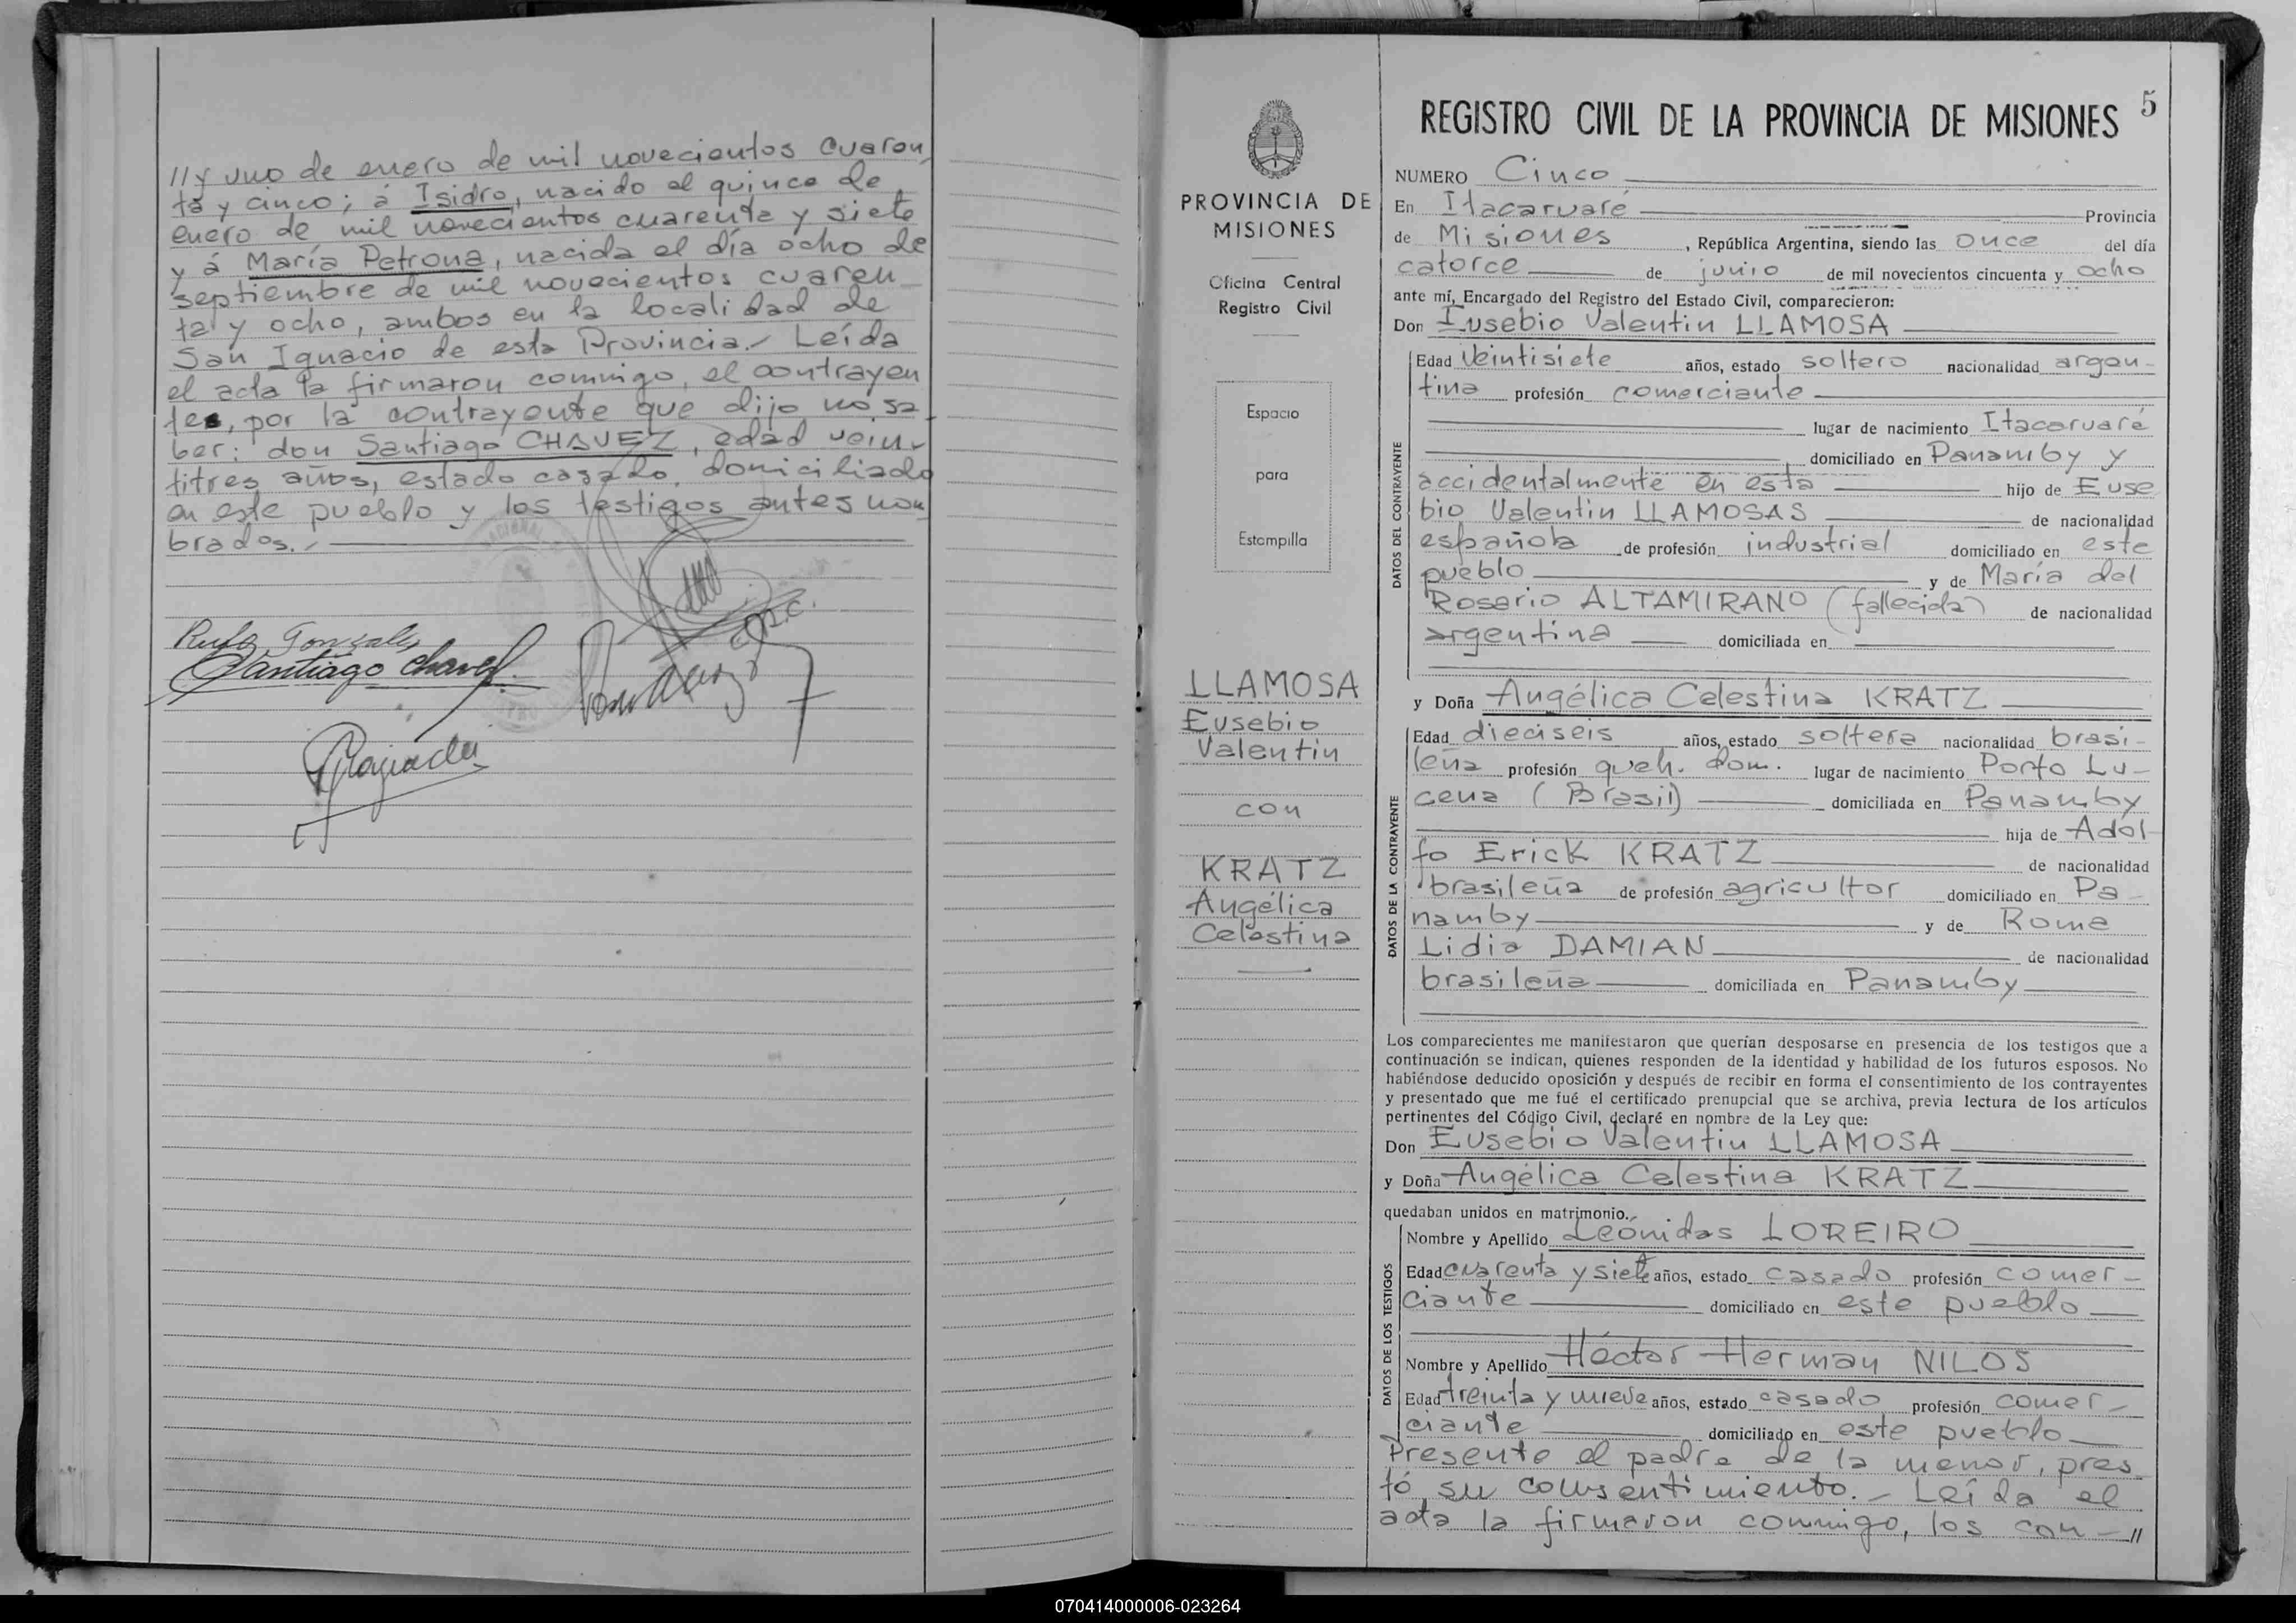 //y uno de enero de mil novecientos cuaren
ta y cinco; á Isidro, nacido el quince de
enero de mil novecientos cuarenta y siete
y á María Petrona, nacida el día ocho de
septiembre de mil novecientos cuaren
ta y ocho, ambos en la localidad de
San Ignacio de esta Provincia.- Leída
el acta la firmaron conmigo, el contrayen
te, por la contrayente que dijo no sa
ber: don Santiago CHAVEZ, edad vein-
titres años, estado casado, domiciliado
en este pueblo y los testigos antes nom
brados.-
Rufo Gonzalez
Santiago Chavez
5
REGISTRO CIVIL DE LA PROVINCIA DE MISIONES
PROVINCIA DE
MISIONES
Oficina Central
Registro Civil
Espacio
para
Estampilla
LLAMOSA
Eusebio
Valentin
con
KRATZ
Angélica
Celestina
NUMERO Cinco
En Itacaruaré Provincia
de Misiones, República Argentina, siendo las once del día
catorce de junio de mil novecientos cincuenta y ocho
ante mí, Encargado del Registro del Estado Civil, comparecieron:
Don Eusebio Valentin LLAMOSA
DATOS DEL CONTRAYENTE
Edad Veintisiete años, estado soltero nacionalidad argen-
tina profesión comerciante
lugar de nacimiento Itacaruaré
domiciliado en Panamby y
accidentalmente en esta hijo de Euse
bio Valentin LLAMOSAS de nacionalidad
española de profesión industrial domiciliado en este
pueblo y de María del
Rosario ALTAMIRANO (fallecida) de nacionalidad
argentina domiciliada en
y Doña Angélica Celestina KRATZ
DATOS DE LA CONTRAYENTE
Edad dieciseis años, estado soltera nacionalidad brasi-
leña profesión queh. dom. lugar de nacimiento Porto Lu-
cena (Brasil) domiciliada en Panamby
hija de Adol
fo Erick KRATZ de nacionalidad
brasileña de profesión agricultor domiciliado en Pa-
namby y de Roma
Lidia DAMIAN de nacionalidad
brasileña domiciliada en Panamby
Los comparecientes me manifestaron que querían desposarse en presencia de los testigos que a
continuación se indican, quienes responden de la identidad y habilidad de los futuros esposos. No
habiéndose deducido oposición y después de recibir en forma el consentimiento de los contrayentes
y presentado que me fué el certificado prenupcial que se archiva, previa lectura de los artículos
pertinentes del Código Civil, declaré en nombre de la Ley que:
Don Eusebio Valentin LLAMOSA
y Doña Angélica Celestina KRATZ
quedaban unidos en matrimonio.
DATOS DE LOS TESTIGOS
Nombre y Apellido Leónidas LOREIRO
Edad cuarenta y siete años, estado casado profesión comer-
ciante domiciliado en este pueblo
Nombre y Apellido Héctor Herman NILOS
Edad treinta y nueve años, estado casado profesión comer-
ciante domiciliado en este pueblo
Presente el padre de la menor, pres
tó su consentimiento.- Leída el
acta la firmaron conmigo, los con-//
070414000006-023264